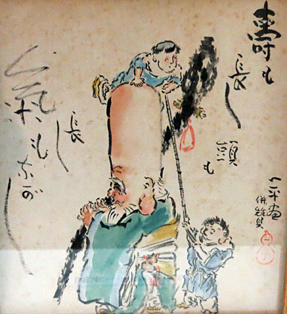 壽も
長し
頭も
長し
氣もながし
一平画